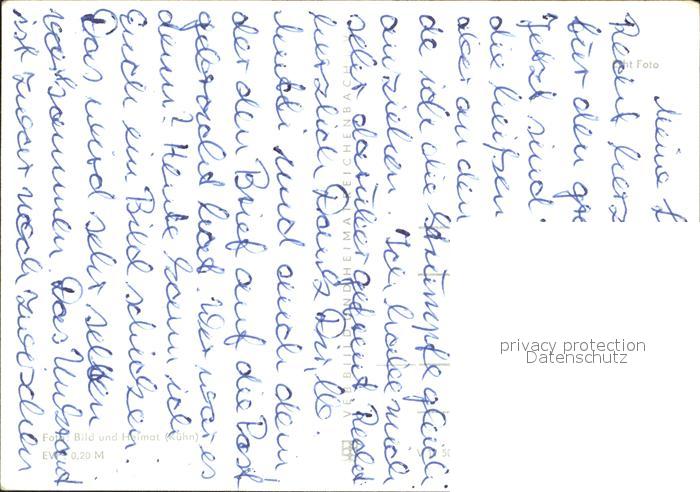 Meine L
Recht herz
für den ge
Jetzt sind
die heißen
aber an den
da ich die Strümpfe gleich
anziehen. Ich habe mich
sehr darüber gefreut. Recht
herzlich Dank Dir lb.
und auch dem
der den Brief auf die Post
gebracht hat. Wer war es
denn? Heute kann ich
Euch ein Bild schicken.
Das wird sehr selten
vorkommen. Das Unkraut
ist zwar noch zwischen
Echt Foto
VERLAG BILD UND HEIMAT REICHENBACH
Foto: Bild und Heimat (Kühn)
EVP 0,20 M
privacy protection
Datenschutz